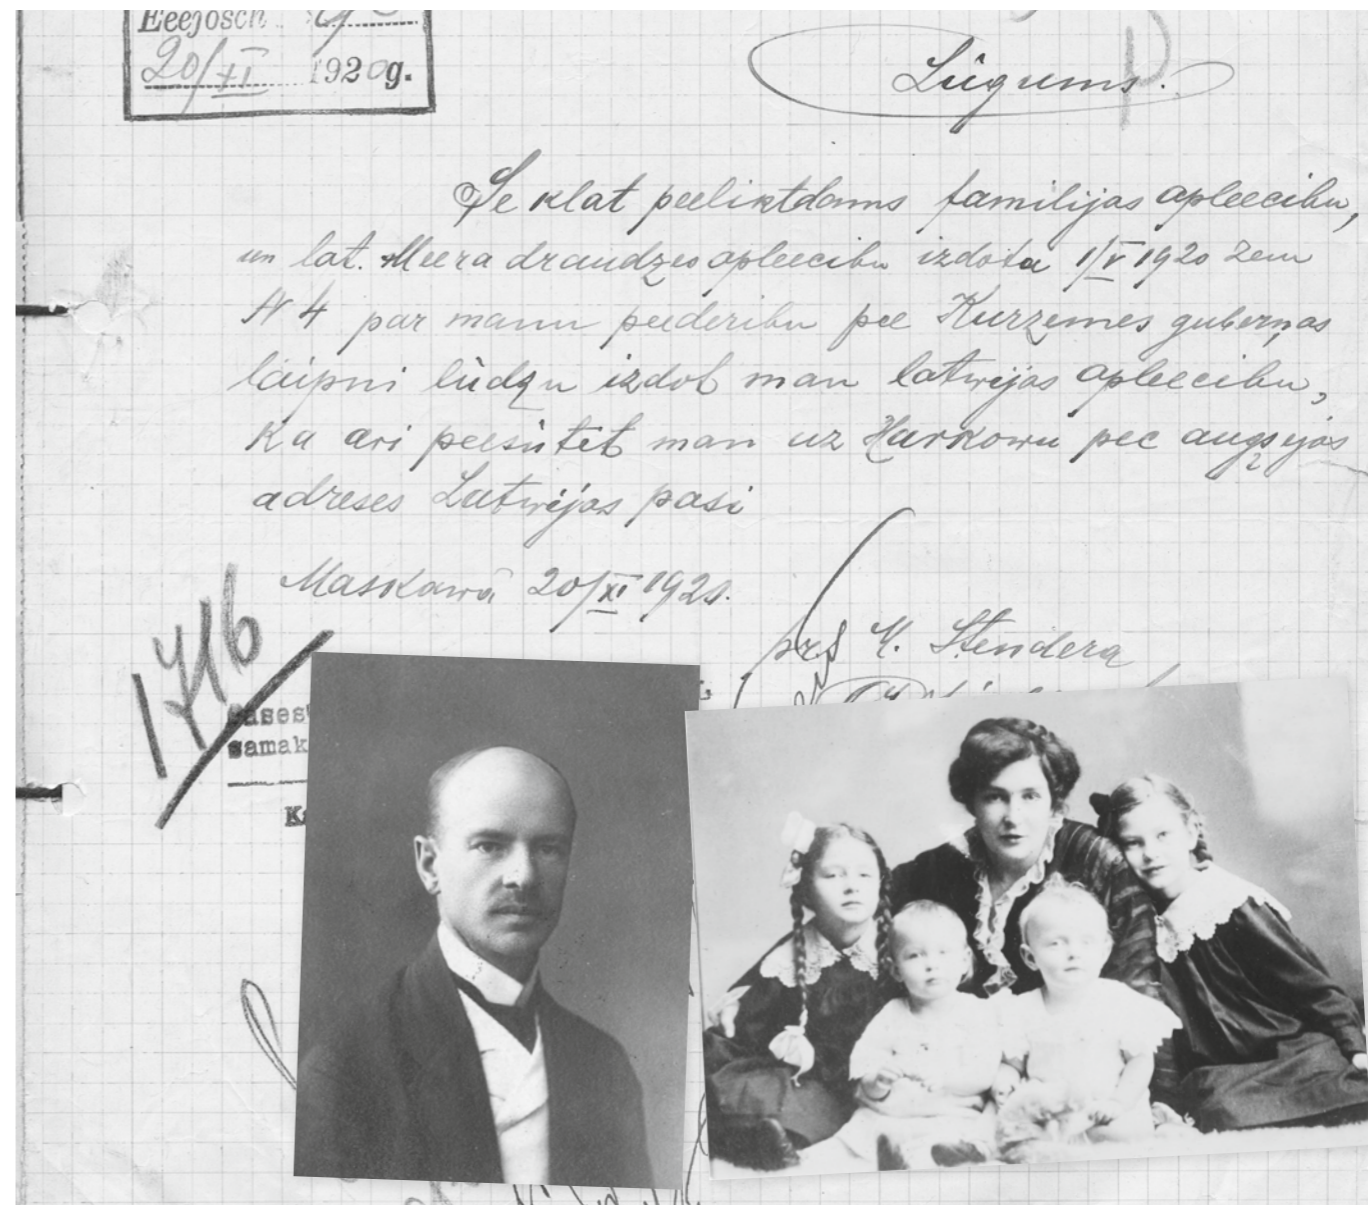 Eeejosch
20/XI 1920g.
Lūgums.
Še klat peeliktdams familijas apleecibu,
un lat. Meera draudzes apleecibu izdota 1/V 1920 zem
N 4 par manu peederibu pee Kurzemes guberņas
laipni lūdzu izdot man latwijas apleecibu,
ka ari peesūtit man uz Harkowu pec augšejās
adreses Latwijas pasi
Maskawā 20/XI 1920.
1716
K. Stendera
samak